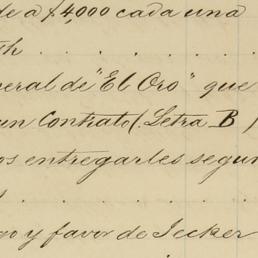 de a $4,000 cada una
th . . . . . . .
neral de "El Oro" que
un Contrato (Letra B)
os entregarles segun
. . . . . .
go y favor de Jecker